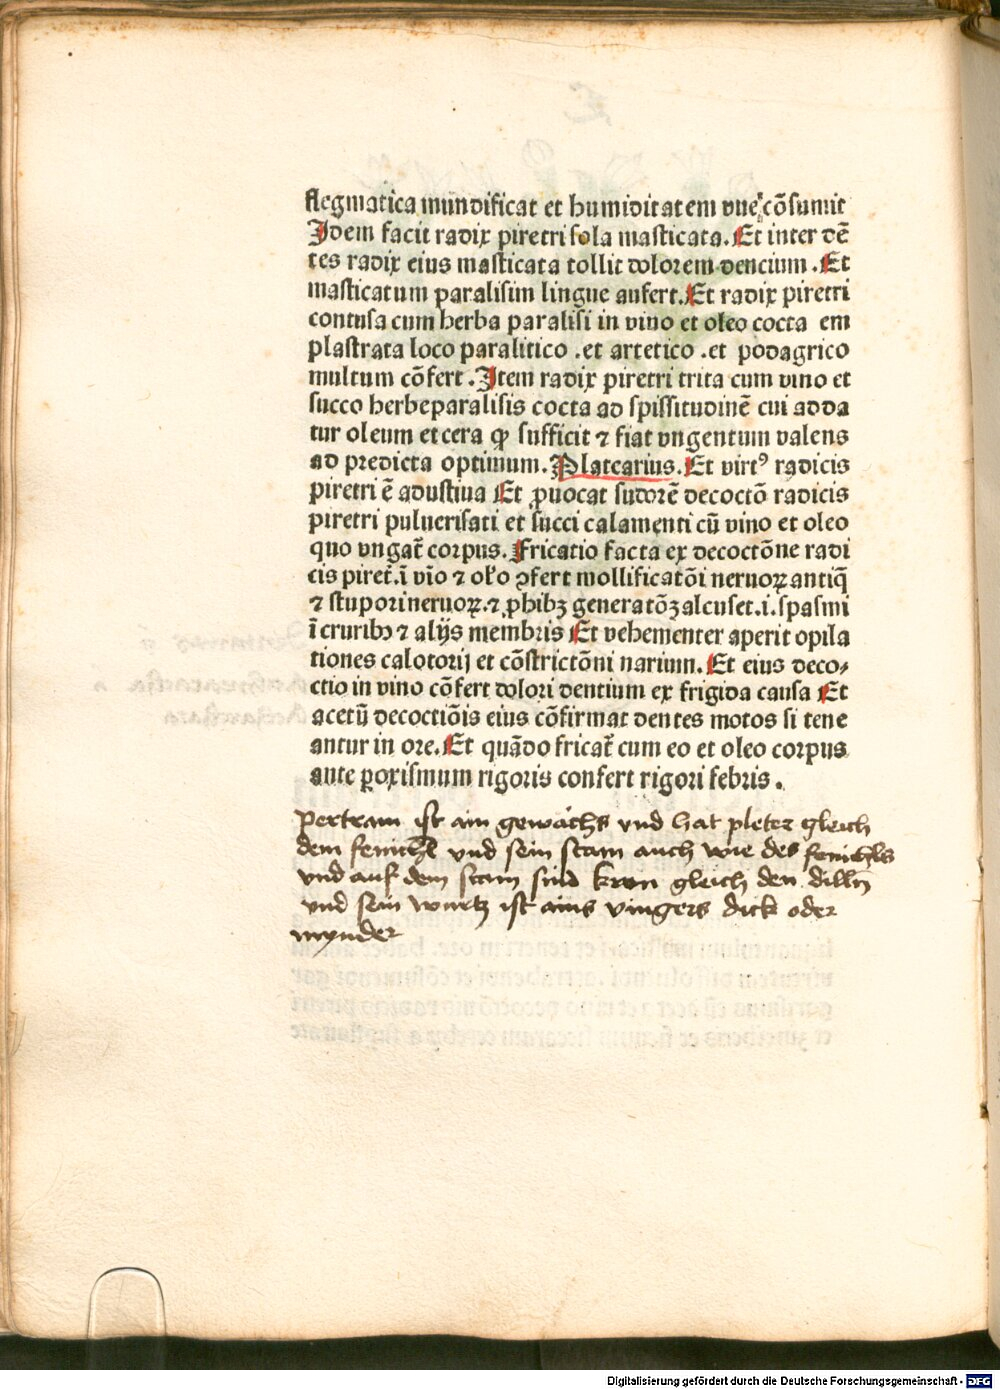 flegmatica mundificat et humiditatem vue᷒ cōsumit
Idem facit radix piretri sola masticata. Et inter dē
tes radix eius masticata tollit dolorem dencium. Et
masticatum paralisim lingue aufert. Et radix piretri
contusa cum herba paralisi in vino et oleo cocta em
plastrata loco paralitico .et artetico .et podagrico
multum cōfert. Item radix piretri trita cum vino et
succo herbeparalisis cocta ad spissitudinē cui adda
tur oleum et cera ꝙ sufficit ⁊ fiat vngentum valens
ad predicta optimum. Platearius. Et virtꝰ radicis
piretri ē adustiua Et ꝓuocat sudorē decoctō radicis
piretri puluerisati et succi calamenti cū vino et oleo
quo vngat̄ corpus. Fricatio facta ex decoctōne radi
cis piret̄.ī vīo ⁊ oľo ꝯfert mollificatōi neruoꝝ antiq̄
⁊ stupori neruoꝝ.⁊ ꝓhibꝫ generatōꝫ alcuset.i.spasmi
ī cruribꝫ ⁊ alijs membris Et vehementer aperit opila
tiones calotorij et cōstrictōni narium. Et eius deco-
ctio in vino cōfert dolori dentium ex frigida causa Et
acetū decoctiōis eius cōfirmat dentes motos si tene
antur in ore. Et quādo fricat̄ cum eo et oleo corpus
ante ꝑoxismum rigoris confert rigori febris.
Pertram ist ain gewächs vnd hat pleter gleich
dem fenichl vnd sein stam auch wie des fenichls
vnd auf dem stam sind kron gleich den dilln
vnd sein wurtz ist ains vingers dick oder
mynder
Digitalisierung gefördert durch die Deutsche Forschungsgemeinschaft - DFG